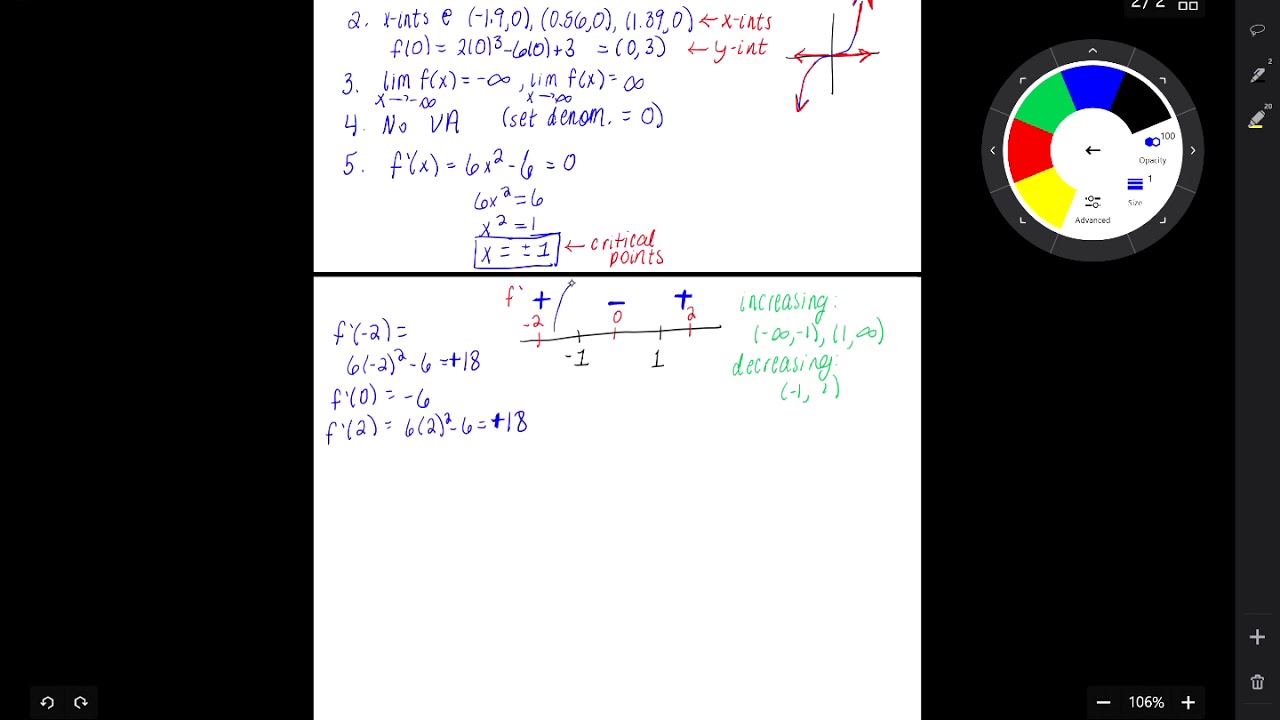 2/2
2. x-ints @ (-1.9,0), (0.56,0), (1.39,0) ← x-ints
f(0) = 2(0)³-6(0)+3 = (0,3) ← y-int
3. lim f(x) = -∞, lim f(x) = ∞
x→-∞ x→∞
4. No VA (set denom. = 0)
5. f'(x) = 6x²-6 = 0
6x² = 6
x² = 1
x = ±1 ← critical points
f' + - +
-2 0 2
-1 1
f'(-2) =
6(-2)²-6 = +18
f'(0) = -6
f'(2) = 6(2)²-6 = +18
increasing:
(-∞,-1), (1,∞)
decreasing:
(-1, )
100
Opacity
1
Size
Advanced
2
20
106%